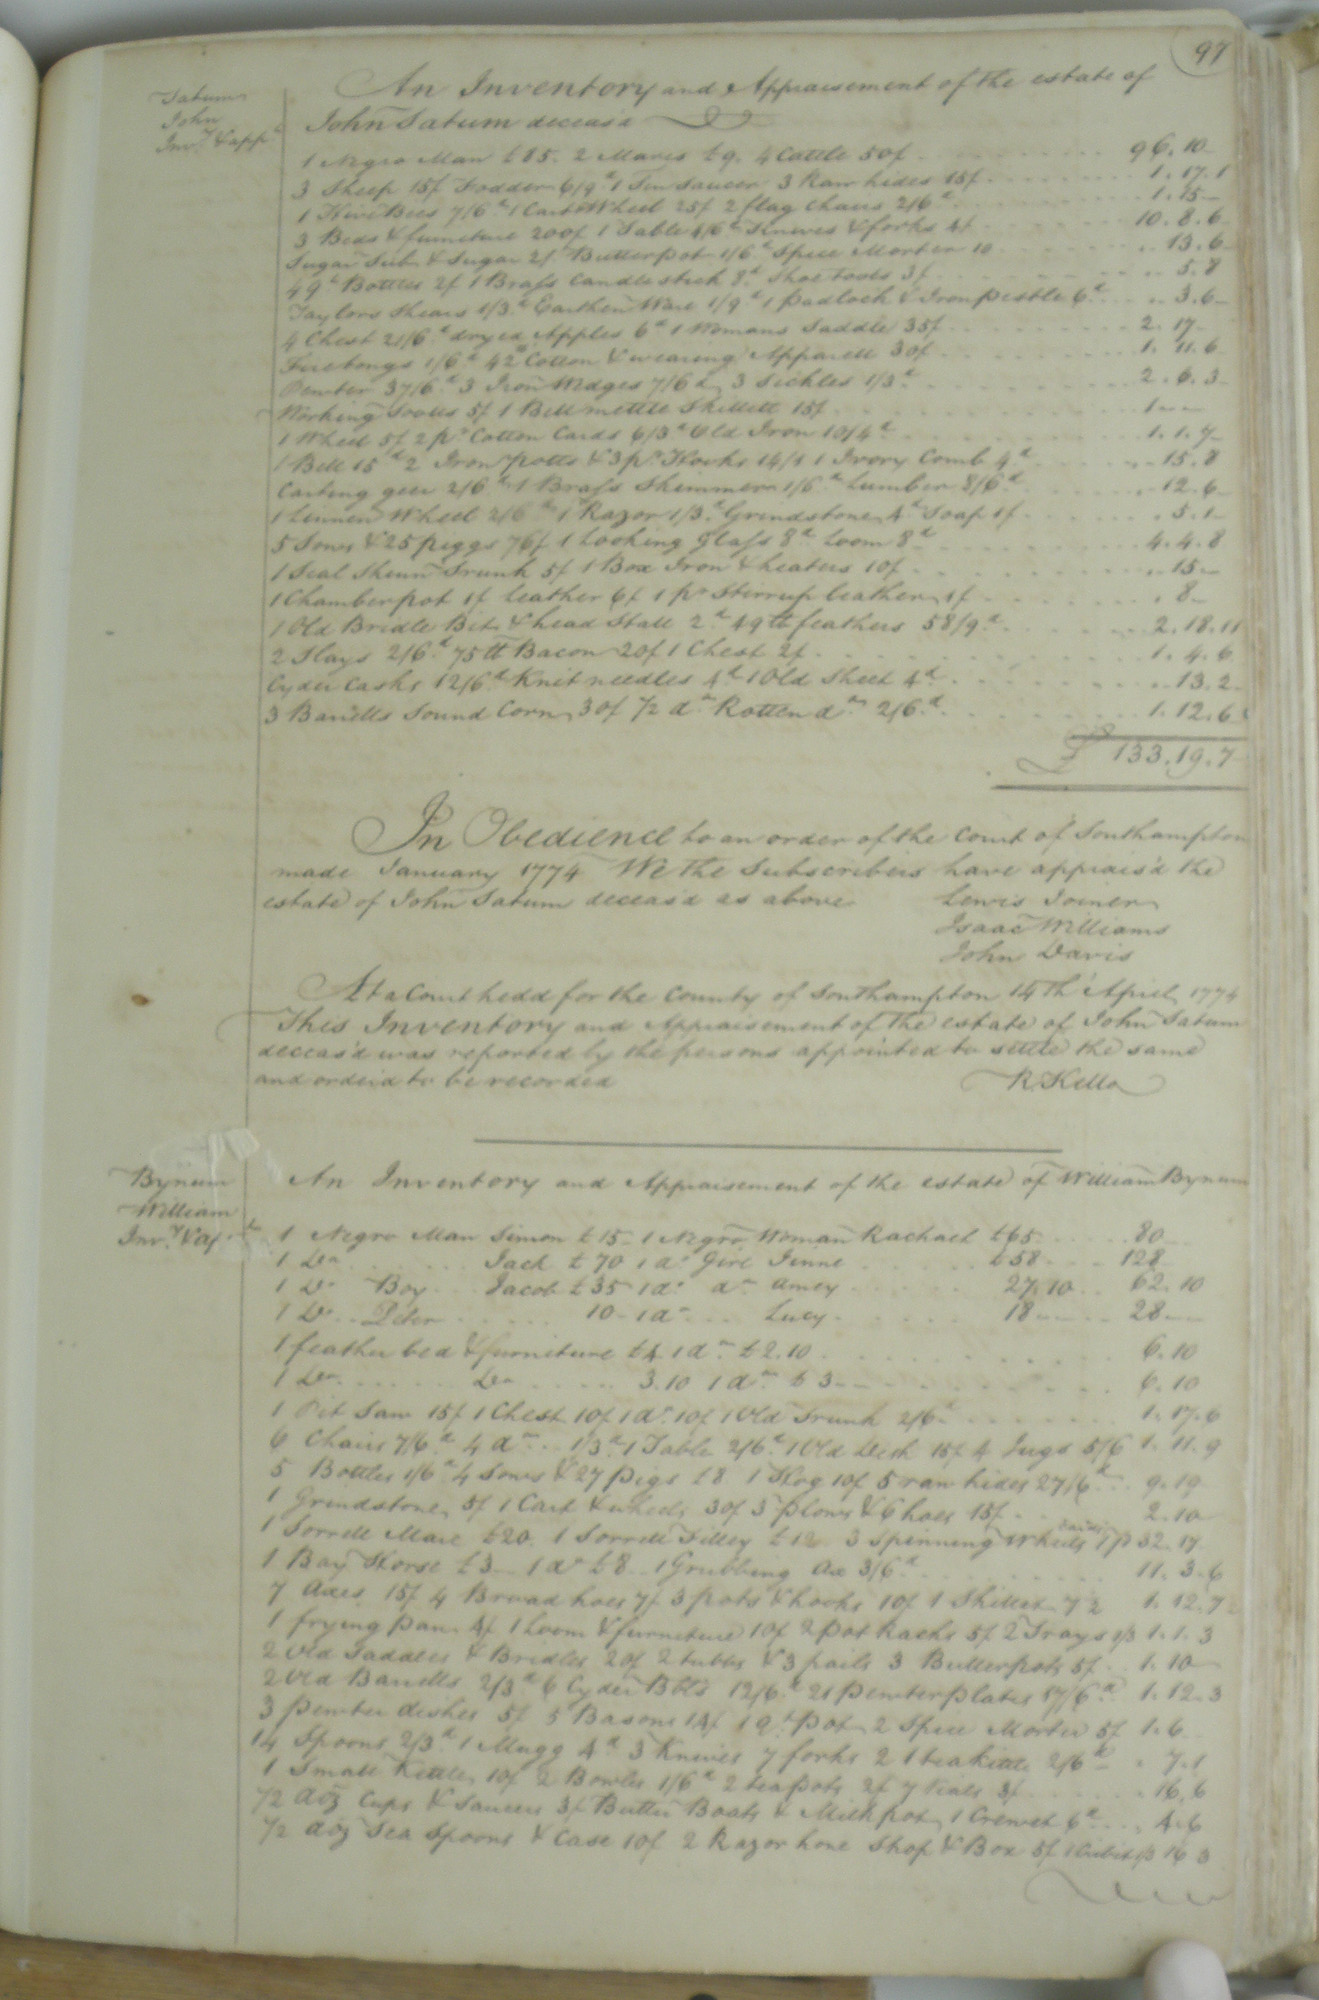 97
Tatum
John
Inv.y & app.t
An Inventory and Appraisement of the estate of
John Tatum deceas'd
1 Negro Man £85. 2 Mares £9. 4 Cattle 50/ 96.10
3 Sheep 15/ Fodder 6/9d 1 Tin Saucer 3 Raw hides 15/ 1.17.1
1 Hive Bees 7/6d 1 Cart Wheel 25/ 2 flag Chairs 2/6d 1.15
3 Beds & furniture 200/ 1 Table 4/6d Knives & forks 4/ 10.8.6
Sugar Tub & Sugar 2/ Butter pot 1/6d Spice Morter 10 .13.6
4 q.t Bottles 2/ 1 Brass Candlestick 8d Shoe Tools 3/ 5.8
Taylors Shears 1/3d Earthen Ware 1/9d 1 padlock & Iron pestle 6d 3.6
4 Chest 21/6d dryed Apples 6d 1 Womans Saddle 35/ 2.17
Fire tongs 1/6d 42 Cotton & wearing Apparell 30/ 1.11.6
Pewter 37/6d 3 Iron Wedges 7/6d 3 Sickles 1/3d 2.6.3
Working Tools 5/ 1 Bell mettle Skillett 15/ 1
1 Wheel 5/ 2 pr Cotton Cards 6/3d Old Iron 10/4d 1.1.7
1 Bell 15d 2 Iron potts & 3 pr Hooks 14/1 1 Ivory Comb 4d 15.8
Carting geer 2/6d 1 Brass Skimmer 1/6d Lumber 8/6d 12.6
1 Linnen Wheel 2/6d 1 Razor 1/3d Grindstone 4d Soap 1/ 5.1
5 Sows & 25 piggs 76/ 1 Looking Glass 8d Loom 8d 4.4.8
1 Seal Skinn Trunk 5/ 1 Box Iron & heaters 10/ 15
1 Chamber pot 1/ leather 6/ 1 pr Stirrup leathers 1/ 8
1 Old Bridle Bit & head Stall 2d 49 tt feathers 58/9d 2.18.11
2 Slays 2/6d 75 tt Bacon 20/ 1 Chest 2/ 1.4.6
Cyder Casks 12/6d Knit needles 4d 1 Old Sheet 4d 13.2
3 Barells Sound Corn 30/ 1/2 do Rotten do 2/6d 1.12.6
£ 133.19.7
In Obedience to an order of the Court of Southampton
made January 1774 We the Subscribers have apprais'd the
estate of John Tatum deceas'd as above
Lewis Joiner
Isaac Williams
John Davis
At a Court held for the County of Southampton 14th April 1774
This Inventory and Appraisement of the estate of John Tatum
deceas'd was reported by the persons appointed to settle the same
and order'd to be recorded
R. Kello
Bynum
William
Inv.y & ap
An Inventory and Appraisement of the estate of William Bynum
1 Negro Man Simon £15 1 Negro Woman Rachael £65 80
1 Do Jack £70 1 do Girl Jinne £58 128
1 Do Boy Jacob £35 1 do do Amey 27.10 62.10
1 Do Peter 10 1 do Lucy 18 28
1 feather bed & furniture £4 1 do £2.10 6.10
1 Do Do 3.10 1 do £3 6.10
1 Pit Saw 15/ 1 Chest 10/ 1 do 10/ 1 Old Trunk 2/6d 1.17.6
6 Chairs 7/6d 4 do 1/3d 1 Table 2/6d 1 Old Desk 15/ 4 Jugs 5/6 1.11.9
5 Bottles 1/6d 4 Sows & 27 pigs £8 1 Hog 10/ 5 raw hides 27/6d 9.19
1 Grindstone 5/ 1 Cart & wheels 30/ 3 plows & 6 hoes 15/ 2.10
1 Sorrell Mare £20. 1 Sorrell Filley £12 3 Spinning Wheels 32.17
1 Bay Horse £3 1 do £8 1 Grubbing Ax 3/6d 11.3.6
7 Axes 15/ 4 Broad hoes 7/ 3 pots & hooks 10/ 1 Skillet 7 1/2 1.12.7 1/2
1 frying pan 4/ 1 Loom & furniture 10/ 2 pot Racks 5/ 2 Trays 1.1.3
2 Old Saddles & Bridles 20/ 2 tubbs & 3 pails 3 Butter pots 5/ 1.10
2 Old Barells 2/3d 6 Cyder Bbls 12/6d 21 pewter plates 17/6d 1.12.3
3 pewter dishes 5/ 5 Basons 14/ 1 qt Pot 2 Spice Morter 5/ 1.6
14 Spoons 2/3d 1 Mugg 4d 3 Knives 7 forks 2 1 tea kittle 2/6d 7.1
1 Small Kettle 10/ 2 Bowles 1/6d 2 tea pots 2/ 7 Vials 3/ 16.6
1/2 doz Cups & Saucers 3/ Butter Boats & Milk pot 1 Crewet 6d 4.6
1/2 doz Tea Spoons & Case 10/ 2 Razor hone Shop & Box 5/ 16 3